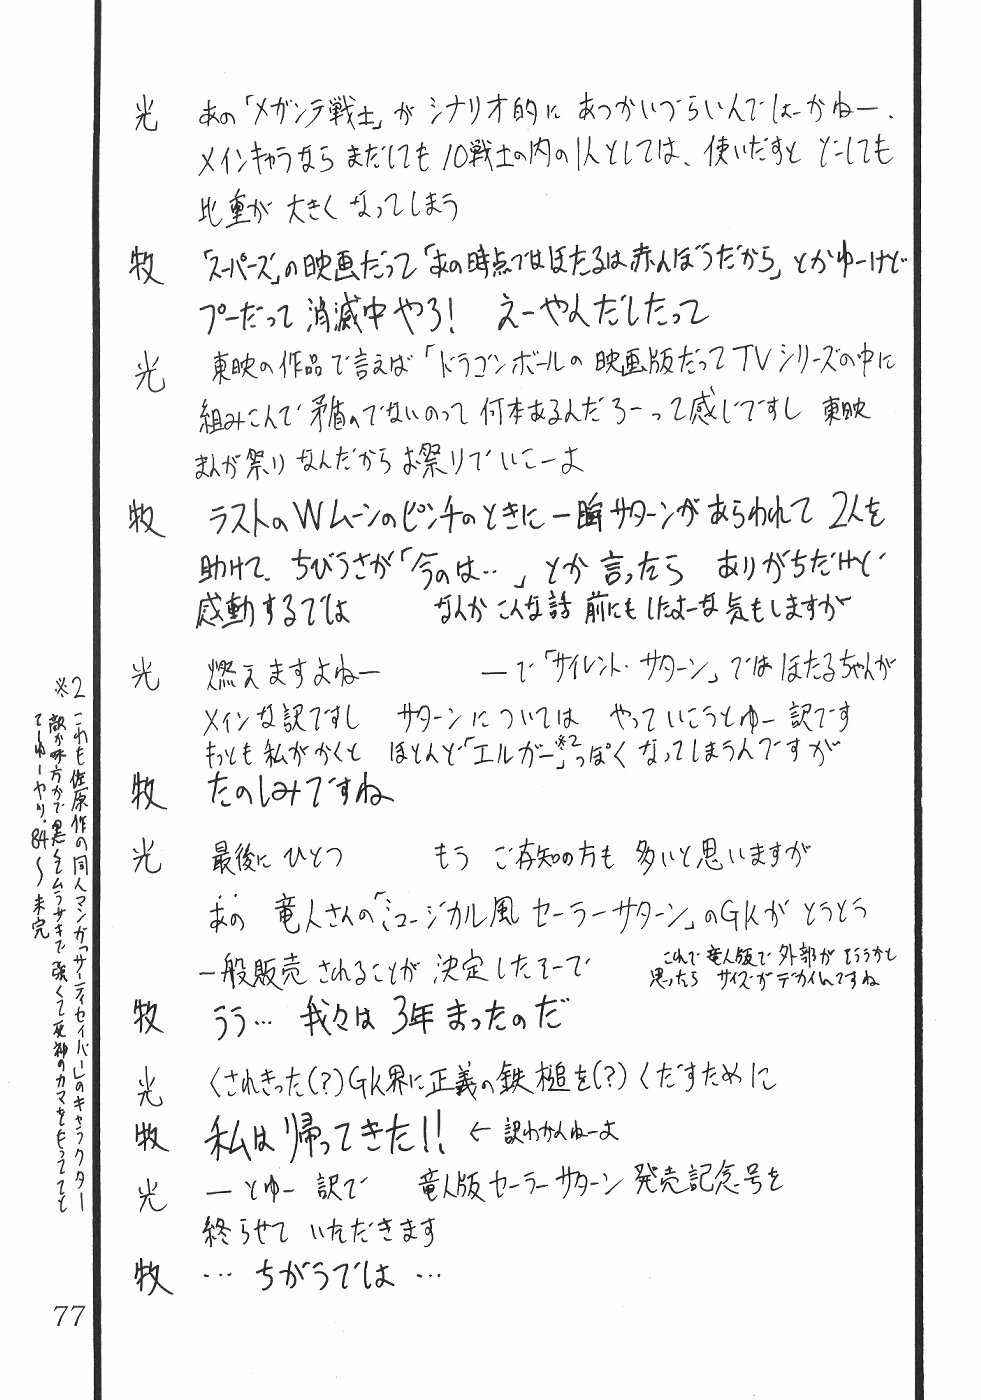 光 あの「メガンテ戦士」が シナリオ的に あつかいづらいんでしょーかねー、
メインキャラなら まだしても 10戦士の内の1人としては、使いだすと どーしても
比重が 大きく なってしまう
牧 「スーパーズ」の映画だって「あの時点ではほたるは赤んぼうだから」とかゆーけど
プーだって 消滅中やろ! えーやんだしたって
光 東映の作品で言えば「ドラゴンボールの 映画版だってTVシリーズの中に
組みこんで 矛盾のでないのって 何本あるんだろーって感じですし 東映
まんが祭り なんだから お祭りでいこーよ
牧 ラストのWムーンのピンチのときに 一瞬サターンがあらわれて 2人を
助けて、ちびうさが「今のは‥」とか 言ったら ありがちだけど
感動するでは なんか こんな話 前にもしたよーな気もしますが
光 燃えますよねー ―で「サイレント・サターン」では ほたるちゃんが
メインな訳ですし サターンについては やっていこうとゆー 訳です
もっとも 私がかくと ほとんど「エルガー」※2っぽく なってしまうんですが
牧 たのしみですね
光 最後に ひとつ もう ご存知の方も 多いと思いますが
あの 竜人さんの「ミュージカル風 セーラーサターン」のGKが とうとう
一般販売 されることが 決定したそーで
これで 竜人版で 外部が そろうかと
思ったら サイズが デカイんですね
牧 うう… 我々は 3年まったのだ
光 くされきった(?)GK界に正義の鉄槌を(?)くだすために
牧 私は 帰ってきた!! ← 訳わかんねーよ
光 ―とゆー 訳で 竜人版セーラーサターン 発売記念号を
終らせて いただきます
牧 … ちがうでは …
※2 これも佐原作の同人マンガ「サイティセイバー」のキャラクター
敵か味方かで黒くてムラサキで強くて死神のカマをもってて
てーゆーヤツ。84~未完
77